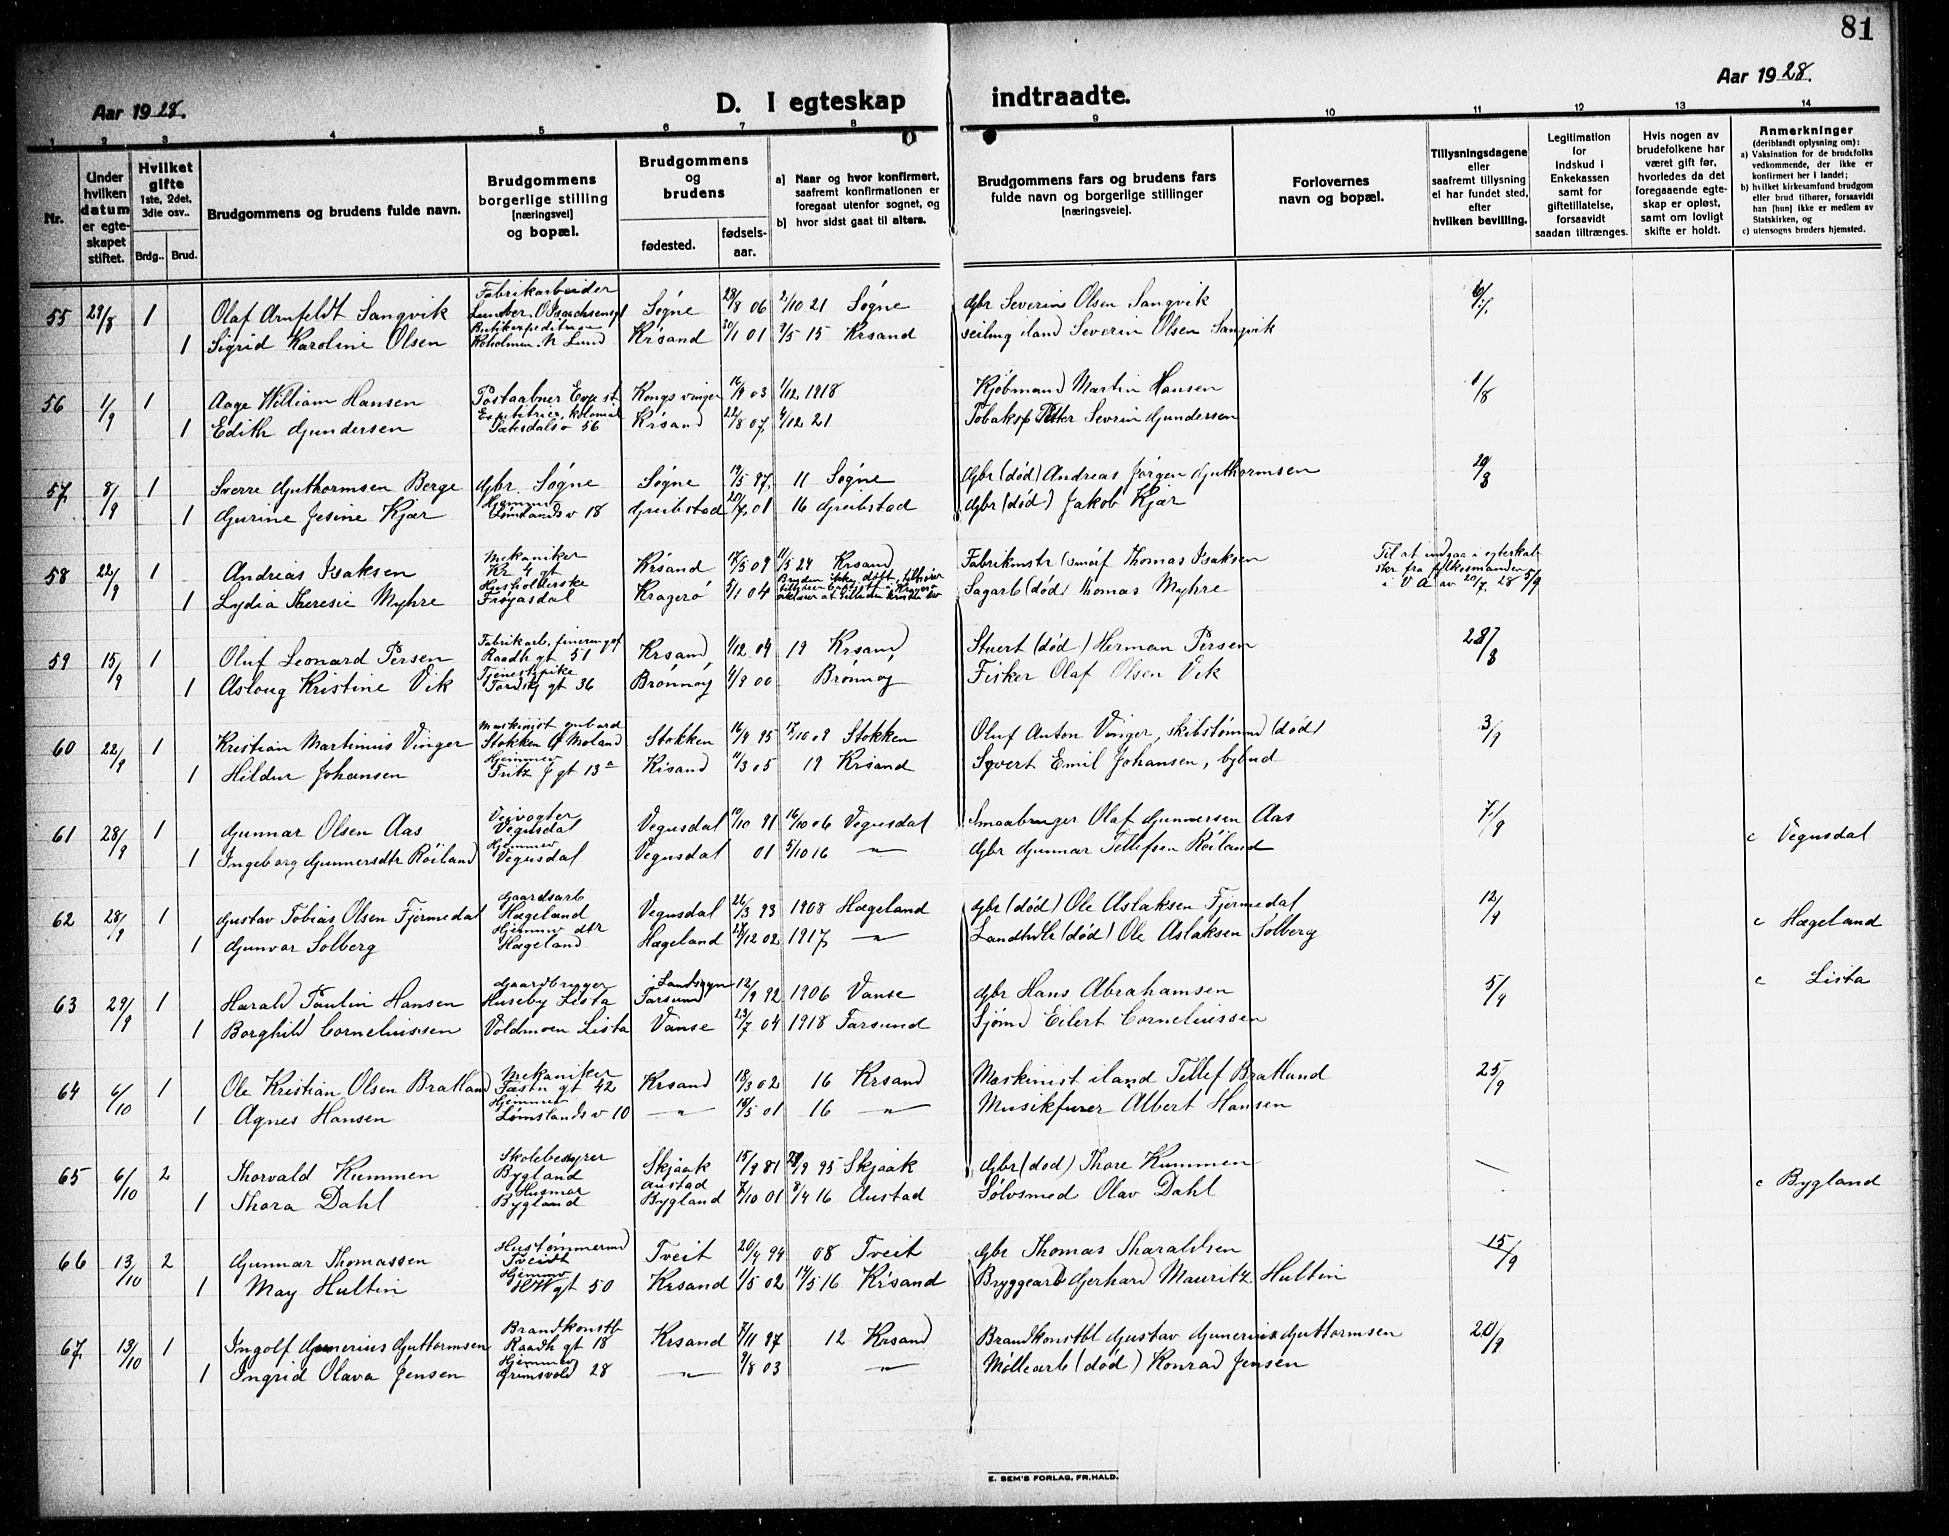 81
Aar 1928.
D. I egteskap
indtraadte.
Aar 1928.
1 2 3 4 5 6 7 8 9 10 11 12 13 14
Nr.
Under hvilken datum er egteskapet stiftet.
Hvilket gifte 1ste, 2det, 3die osv..
Brdg.. Brud.
Brudgommens og brudens fulde navn.
Brudgommens borgerlige stilling (næringsvei) og bopæl.
Brudgommens og brudens
fødested.
fødselsaar.
a) Naar og hvor konfirmert, saafremt konfirmationen er foregaat utenfor sognet, og
b) hvor sidst gaat til alters.
Brudgommens fars og brudens fars fulde navn og borgerlige stillinger (næringsveie).
Forlovernes navn og bopæl.
Tillysningsdagene eller saafremt tillysning ei har fundet sted, efter hvilken bevilling.
Legitimation for Indskud i Enkekassen samt for giftetillatelse, forsaavidt saadan tiltrænges.
Hvis nogen av brudefolkene har været gift før, hvorledes da det foregaaende egteskap er opløst, samt om lovligt skifte er holdt.
Anmerkninger (deriblandt oplysning om):
a) Vaksination for de brudefolks vedkommende, der ikke er konfirmert her i landet;
b) hvilket kirkesamfund brudgom eller brud tilhører, forsaavidt han [hun] ikke er medlem av Statskirken, og
c) utensogns bruders hjemsted.
55 29/8 1 Olaf Arnfeldt Sangvik Fabrikarbeider Søgne 28/8 06 2/10 21 Søgne Gbr Severin Olsen Sangvik
1 Sigrid Karoline Olsen Krsand 20/1 01 15 Krsand Severin Olsen Sangvik
56 1/9 1 Aage William Hansen Postaabner Kongsvinger 16/9 03 1/12 1918 Kjøbmand Martin Hansen 1/8
1 Edith Gundersen Sætesdalsv 56 Krsand 22/8 07 4/12 21 Petter Severin Gundersen
57 8/9 1 Sverre Guthormsen Berge Gbr. Søgne Søgne 19/5 97 11 Søgne Gbr (død) Andreas Jørgen Guthormsen 20/8
1 Gurine Jesine Kjær Hjemmev 18 Greibstad 20/7 01 16 Greibstad Gbr (død) Jakob Kjær
58 22/9 1 Andreas Isaksen Mekaniker Kr 4 gt Krsand 17/5 09 11/5 24 Krsand Thomas Isaksen Til at indgaa i egteskab
1 Lydia Theresie Myhre Frøyasdal Kragerø 5/1 04 Sagarb (død) Thomas Myhre av 20/7 28 5/9
59 15/9 1 Oluf Leonard Persen Fabrikarb. Raadh gt 51 Krsand 1/12 04 19 Krsand Stuert (død) Herman Persen 28/8
1 Aslaug Kristine Vik Tjenestepike gt 36 Brønnøy 4/9 00 Brønnøy Fisker Olaf Olsen Vik
60 22/9 1 Kristian Martinius Vinger Maskinist Stokken Moland Stokken 16/9 95 17/10 09 Stokken Oluf Anton Vinger, skibstømmm (død) 3/9
1 Hildur Johansen Hjemmev Fritz J gt 13a Krsand 11/3 05 19 Krsand Syvert Emil Johansen, bybud
61 28/9 1 Gunnar Olsen Aas Veivogter Vegusdal Vegusdal 10/10 91 16/10 06 Vegusdal Smaabruger Olaf Gunnersen Aas 7/9 c Vegusdal
1 Ingeborg Gunnersdtr Røiland Hjemmev Vegusdal Vegusdal 01 5/10 16 — " — Gbr Gunnar Tellefsen Røiland
62 28/9 1 Gustav Tobias Olsen Fjermedal Gaardsarb Hægeland Vegusdal 26/3 93 1908 Hægeland Gbr (død) Ole Aslaksen Fjermedal 12/9 c Hægeland
1 Gunvor Solberg Hjemmev dtr Hægeland Hægeland 27/12 02 1917 — " — (død) Ole Aslaksen Solberg
63 29/9 1 Harald Paulin Hansen Gaardbryger Huseby Lista Landsogn Farsund 12/9 92 1906 Vanse Gbr Hans Abrahamsen 5/9 c Lista
1 Borghild Corneliussen Voldmoen Lista Vanse 23/7 04 1918 Farsund Sjømd Eilert Corneliussen
64 6/10 1 Ole Kristian Olsen Bratland Mekaniker Fæstn gt 42 Krsand 18/3 02 16 Krsand Maskinist iland Tellef Bratland 25/9
1 Agnes Hansen Hjemmev Lømslandsv 10 — " — 18/5 01 16 — " — Albert Hansen
65 6/10 2 Thorvald Kummen Skolebestyrer Bygland Skjaak 15/9 81 95 Skjaak Gbr (død) Thore Kummen — c Bygland
1 Thora Dahl Husmor Bygland Austad Bygland 7/10 01 8/4 16 Austad Sølvsmed Olav Dahl
66 13/10 2 Gunnar Thomassen Hustømmermd Tveidt Tveit 20/4 94 08 Tveit Gbr Thomas Tharaldsen 15/9
1 May Hultin Hjemmev HW gt 50 Krsand 1/5 02 14/5 16 Krsand Bryggearb Gerhard Mauritz Hultin
67 13/10 1 Ingolf Gunerius Guttormsen Brandkonstb Raadh gt 18 Krsand 7/11 97 12 Krsand Brandkonstbl Gustav Gunerius Guttormsen 20/9
1 Ingrid Olava Jensen Hjemmev Grimsvold 28 — " — 9/8 03 — " — Møllearb (død) Konrad Jensen
E. SEM'S FORLAG, FR.HALD.